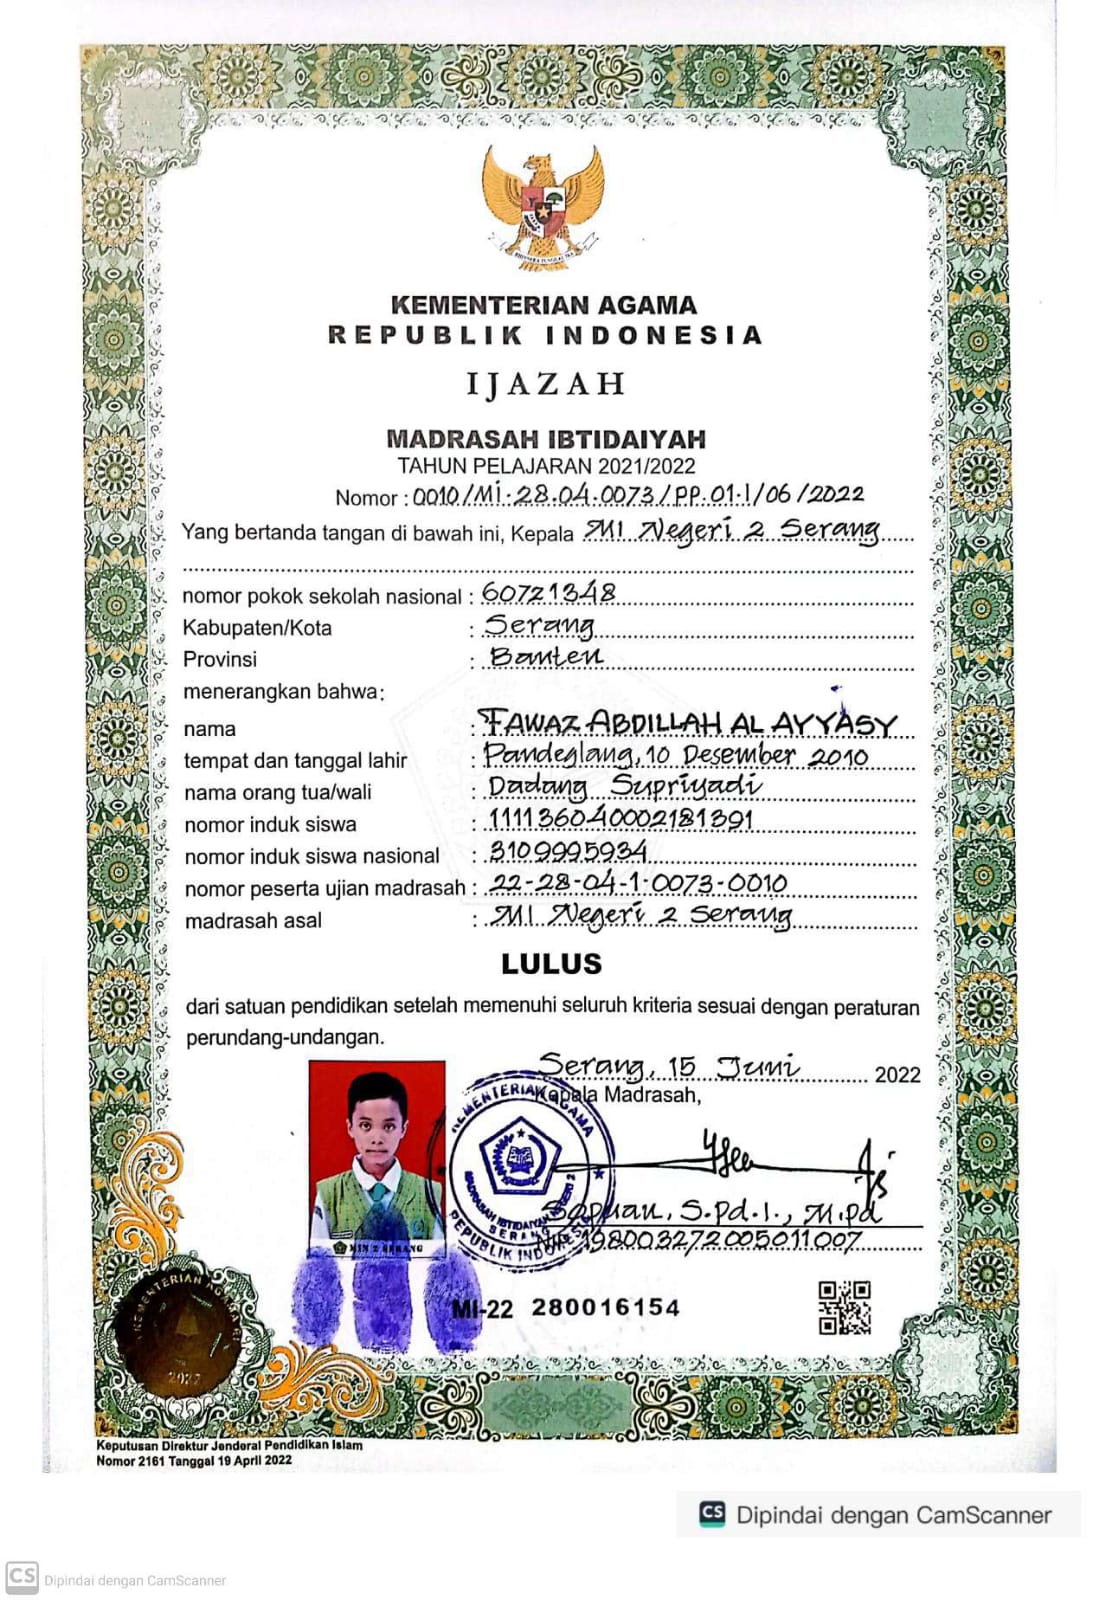 KEMENTERIAN AGAMA
REPUBLIK INDONESIA
IJAZAH
MADRASAH IBTIDAIYAH
TAHUN PELAJARAN 2021/2022
Nomor : 0010/Mi.28.04.0073/PP.01.1/06/2022
Yang bertanda tangan di bawah ini, Kepala MI Negeri 2 Serang
nomor pokok sekolah nasional : 60721348
Kabupaten/Kota : Serang
Provinsi : Banten
menerangkan bahwa:
nama : FAWAZ ABDILLAH AL AYYASY
tempat dan tanggal lahir : Pandeglang, 10 Desember 2010
nama orang tua/wali : Dadang Supriyadi
nomor induk siswa : 111136040002181391
nomor induk siswa nasional : 3109995934
nomor peserta ujian madrasah : 22-28-04-1-0073-0010
madrasah asal : MI Negeri 2 Serang
LULUS
dari satuan pendidikan setelah memenuhi seluruh kriteria sesuai dengan peraturan
perundang-undangan.
Serang, 15 Juni 2022
Kepala Madrasah,
KEMENTERIAN AGAMA
MADRASAH IBTIDAIYAH NEGERI 2
SERANG
REPUBLIK INDONESIA
Sapuan, S.Pd.I., M.Pd
NIP. 198003272005011007
MIN 2 SERANG
MI-22 280016154
KEMENTERIAN AGAMA RI
2022
Keputusan Direktur Jenderal Pendidikan Islam
Nomor 2161 Tanggal 19 April 2022
CS Dipindai dengan CamScanner
CS Dipindai dengan CamScanner